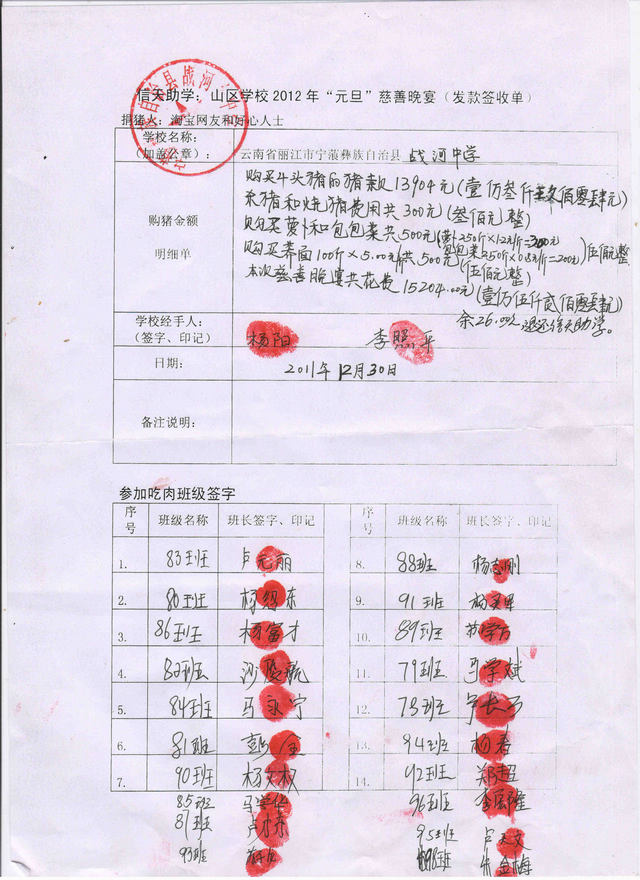 信天助学：山区学校2012年“元旦”慈善晚宴（发款签收单）
捐猪人：淘宝网友和好心人士
学校名称：
（加盖公章）：
云南省丽江市宁蒗彝族自治县 战河中学
购猪金额
明细单
购买牛头猪的猪款13904元(壹仟叁仟 佰零肆元)
杀猪和烧猪费用共300元(叁佰元整)
购买萝卜和包包菜共500元(萝卜250斤×1.2元/斤=300元
包包菜250斤×0.8元/斤=200元)伍佰元整
购买荞面100斤×5.00元/斤共500元(伍佰元整)
本次慈善晚宴共花费15204.00元(壹万伍仟贰佰零肆元)
余26.00元退还信天助学。
学校经手人：
（签字、印记）
杨阳 李照平
日期：
2011年12月30日
备注说明：
参加吃肉班级签字
序号 班级名称 班长签字、印记 序号 班级名称 班长签字、印记
1. 83班 卢元丽 8. 88班 杨志刚
2. 80班 杨 东 9. 91班 杨
3. 86班 杨富才 10. 89班 苏学方
4. 82班 沙 航 11. 79班 马学斌
5. 84班 马永宁 12. 78班
6. 81班 彭 金 13. 94班 杨春
7. 90班 杨文权 14. 92班 郑超
85班 马学 96班 李 隆
87班 卢 95班 卢 文
93班 98班 朱金梅